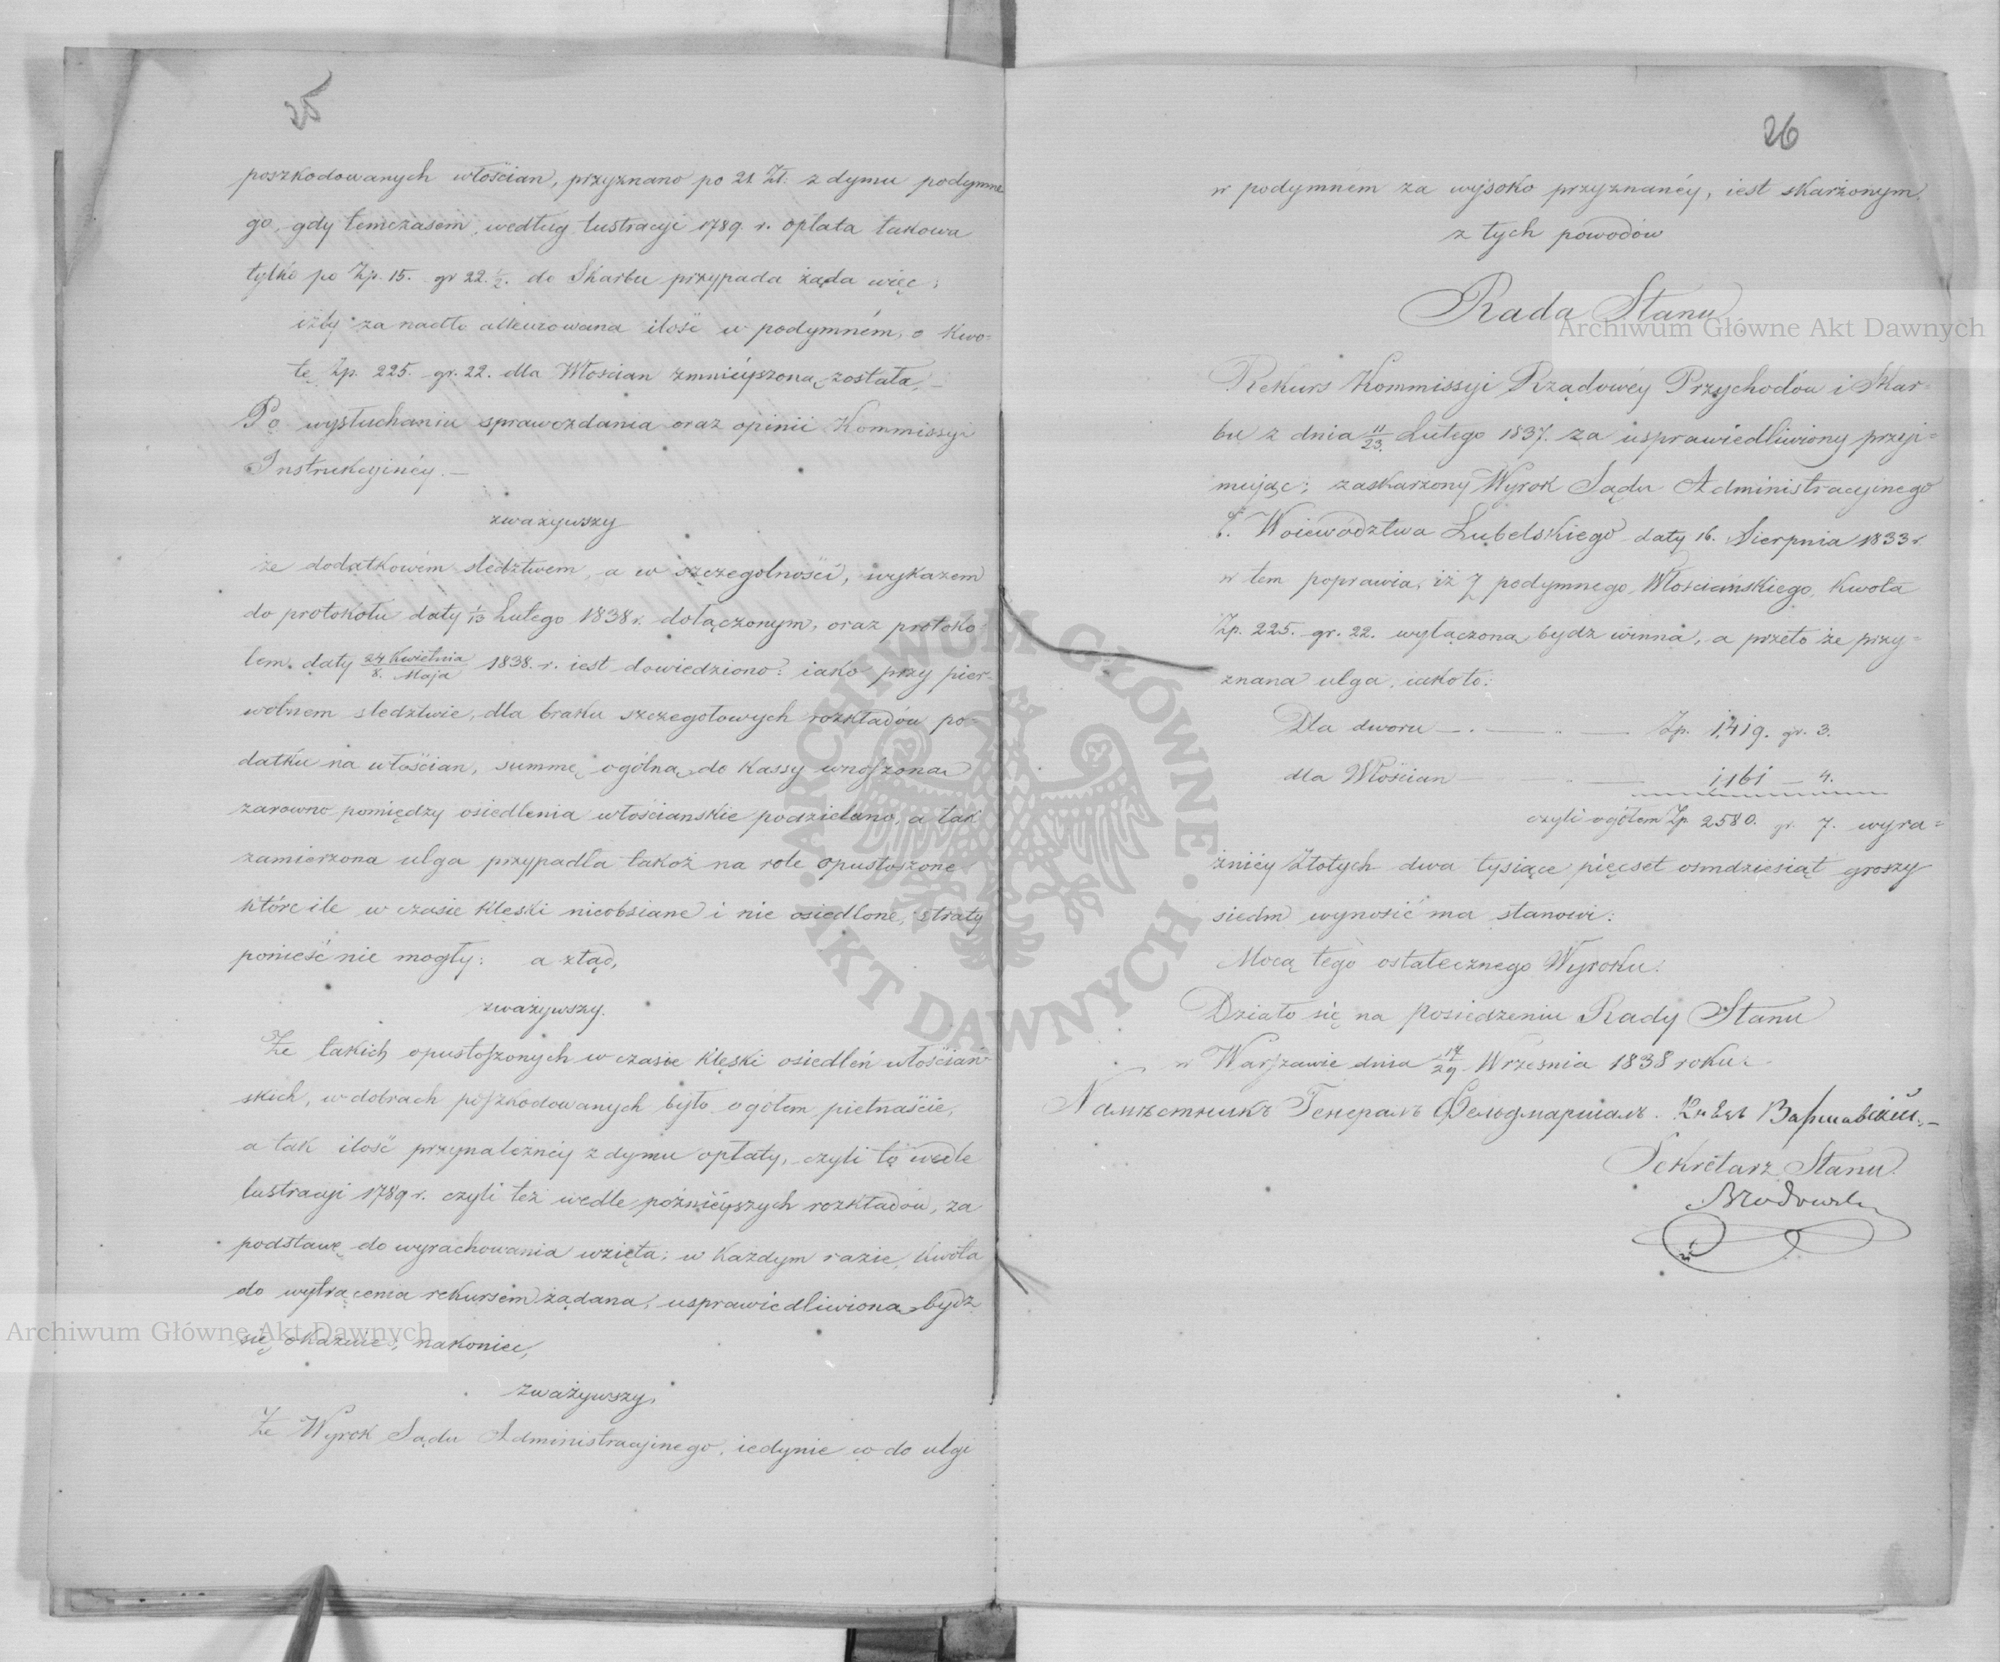 25
poszkodowanych włościan, przyznano po 21 Zł. z dymu podymne
go, gdy tymczasem, według lustracyi 1789 r. opłata takowa
tylko po Zp. 15. gr 22. ½. do Skarbu przypada żąda więc;
iżby za nadto allewowana ilość w podymném, o kwo=
tę Zp. 225. gr. 22. dla Włościan zmnieyszoną została. –
Po wysłuchaniu sprawozdania oraz opinii Kommissyi
Instrukcyinéy. –
zważywszy
że dodatkowém śledztwem, a w szczególności, wykazem
do protokołu daty 1/13 Lutego 1838 r. dołączonym, oraz protoko=
łem daty 24 Kwietnia / 8. Maja 1838. r. iest dowiedziono: iako przy pier=
wotnem śledztwie, dla braku szczegółowych rozkładów po=
datku na włościan, summę ogólną do Kassy wnoszoną
zarówno pomiędzy osiedlenia włościańskie podzielono, a tak
zamierzona ulga przypadła takoż na role opustoszone
które ile w czasie klęski nieobsiane i nie osiedlone, straty
ponieść nie mogły: a ztąd,
zważywszy.
Że takich opustoszonych w czasie klęski osiedleń włościań=
skich, w dobrach poszkodowanych było ogółem piętnaście,
a tak ilość przynależnéy z dymu opłaty, czyli to wedle
lustracyi 1789 r. czyli też wedle późnieyszych rozkładów, za
podstawę do wyrachowania wzięta; w każdym razie, kwota
do wytrącenia rekursem żądana, usprawiedliwioną bydź
się okazuie; nakoniec,
zważywszy,
Że Wyrok Sądu Administracyinego, iedynie co do ulgi
26
w podymném za wysoko przyznanéy, iest skarżonym
z tych powodów
Rada Stanu
Rekurs Kommissyi Rządowéy Przychodów i Skar=
bu z dnia 11/23. Lutego 1837. za usprawiedliwiony przyi=
muiąc; zaskarżony Wyrok Sądu Administracyinego
b. Woiewództwa Lubelskiego daty 16. Sierpnia 1833 r.
w tem poprawia, iż z podymnego Włościańskiego, kwota
Zp. 225. gr. 22. wyłączoną bydź winna, a przeto że przy=
znana ulga, iako to:
Dla dworu — . — „ — Zp. 1,419. gr. 3.
dla Włościan — „ — 1,161 — 4.
czyli ogółem Zp 2580. gr. 7. wyra=
źniéy Złotych dwa tysiące pięćset ośmdziesiąt groszy
siedm wynosić ma stanowi:
Mocą tego ostatecznego Wyroku.
Działo się na posiedzeniu Rady Stanu
w Warszawie dnia 17/29 Września 1838 roku.
Намѣстникъ Генералъ Фельдмаршалъ. Князь Варшавскiй. –
Sekretarz Stanu
Archiwum Główne Akt Dawnych
Archiwum Główne Akt Dawnych
ARCHIWUM GŁÓWNE · AKT DAWNYCH ·